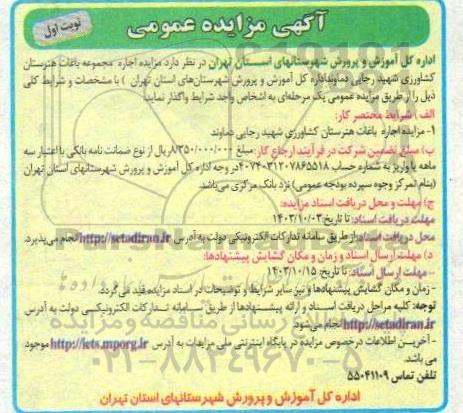 آگهی مزایده عمومی
نوبت اول
اداره کل آموزش و پرورش شهرستانهای استان تهران در نظر دارد مزایده اجاره مجموعه باغات هنرستان
کشاورزی شهید رجایی دماوند(اداره کل آموزش و پرورش شهرستان‌های استان تهران ) با مشخصات و شرایط کلی
ذیل را از طریق مزایده عمومی یک مرحله‌ای به اشخاص واجد شرایط واگذار نماید:
الف ) شرایط مختصر کار:
۱- مزایده اجاره باغات هنرستان کشاورزی شهید رجایی دماوند
ب) مبلغ تضمین شرکت در فرآیند ارجاع کار: مبلغ ۸/۳۵۰/۰۰۰/۰۰۰ریال از نوع ضمانت نامه بانکی با اعتبار سه
ماهه یا واریز به شماره حساب ۴۰۷۴۰۳۱۲۰۷۸۶۵۵۱۸در وجه اداره کل آموزش و پرورش شهرستانهای استان تهران
(بنام تمرکز وجوه سپرده بودجه عمومی) نزد بانک مرکزی می‌باشد.
ج) مهلت و محل دریافت اسناد مزایده:
مهلت دریافت اسناد: تا تاریخ ۱۴۰۳/۱۰/۰۳
محل دریافت اسناد: از طریق سامانه تدارکات الکترونیکی دولت به آدرس http://setadiran.ir انجام می‌پذیرد.
د) مهلت ارسال اسناد و زمان و مکان گشایش پیشنهادها:
-- مهلت ارسال اسناد: تا تاریخ: ۱۴۰۳/۱۰/۱۵
- زمان و مکان گشایش پیشنهادها و نیز سایر شرایط و توضیحات در اسناد مزایده قید می گردد.
توجه: کلیه مراحل دریافت اسناد و ارائه پیشنهادها از طریق سامانه تدارکات الکترونیکی دولت به آدرس
http://setadiran.ir انجام می‌شود
- آخرین اطلاعات درخصوص مزایده در پایگاه اینترنتی ملی مزایدات به آدرس http://iets.mporg.ir موجود
می باشد.
تلفن تماس ۵۵۰۴۱۱۰۹
اداره کل آموزش و پرورش شهرستانهای استان تهران
۰۲۱-۸۸۳۴۹۶۷۰-۵